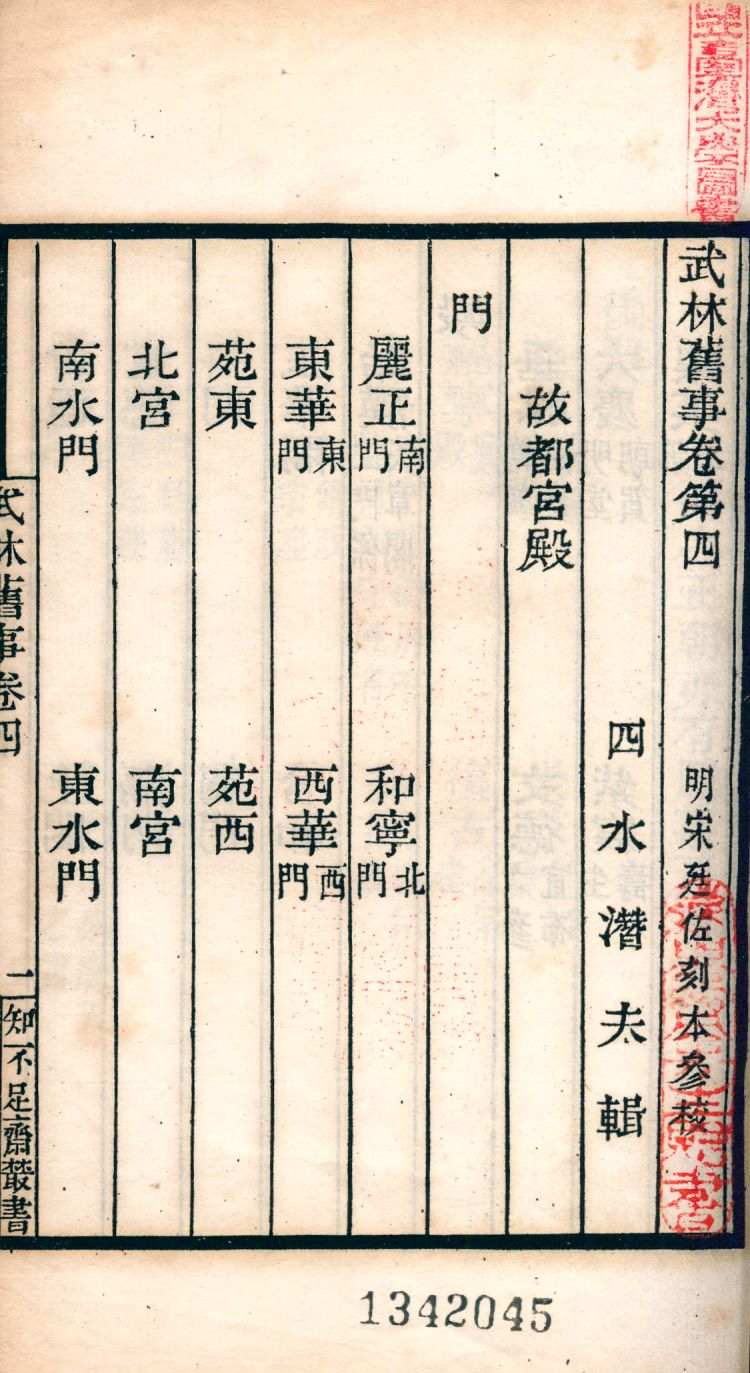 武林舊事卷第四　明宋廷佐刻本參校
四水潛夫輯
故都宮殿
門
麗正南門　和寧北門
東華東門　西華西門
苑東　苑西
北宮　南宮
南水門　東水門
武林舊事卷四　一　知不足齋叢書
1342045